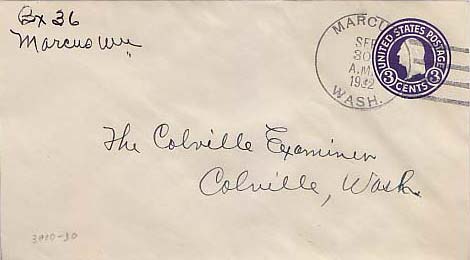 Bx 36
Marcus Wn
MARCUS
SEP
30
A.M.
1932
WASH.
UNITED STATES POSTAGE
3 3
CENTS
The Colville Examiner
Colville, Wash.
3900-30